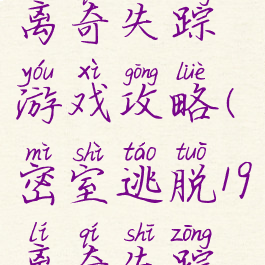 离奇失踪
yóu xì gōng lüè
游戏攻略(
mì shì táo tuō
密室逃脱19
lí qí shī zōng
离奇失踪